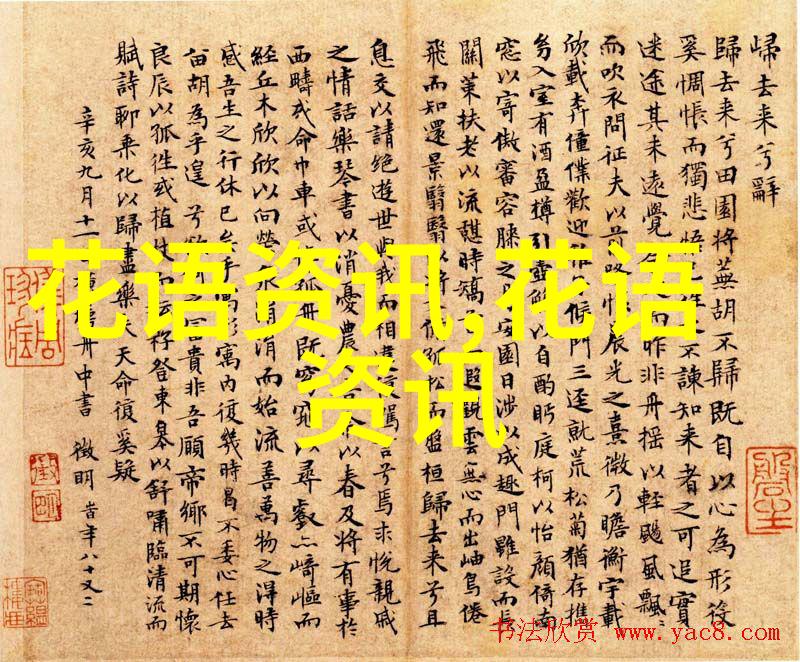 歸去来兮辭
歸去来兮田園将蕪胡不歸既自以心為形役
奚惆悵而獨悲悟不諫知来者之可追實
迷途其未遠覺而昨非舟摇以輕颺風飄〻
而吹衣問征夫以前路恨晨光之熹微乃瞻衡宇載
欣載奔僮僕歡迎候門三逕就荒松菊猶存携
幼入室有酒盈樽引壺觴以自酌眄庭柯以怡顔倚南
窓以寄傲審容膝之安園日涉以成趣門雖設而長
關策扶老以流憩時矯遐觀雲無心而出岫鳥倦
飛而知還景翳翳以将孤松而盤桓歸去来兮且
息交以請絶遊世與我而相違復駕言兮焉求悦親戚
之情話樂琴書以消憂農以春及将有事於
西疇或命巾車或孤舟既窈窕以尋壑亦崎嶇而
經丘木欣欣以向榮泉涓涓而始流善萬物之得時
感吾生之行休已矣乎寓形寓内復幾時曷不委心任去
留胡為乎遑兮欲之富貴非吾願帝鄉不可期懷
良辰以孤往或植杖而耘耔登東皋以舒嘯臨清流而
賦詩聊乗化以歸盡樂夫天命復奚疑
辛亥九月十一舟中書 徵明 時年八十又二
花语资讯,花语
资讯
书法欣赏 www.yac8.com